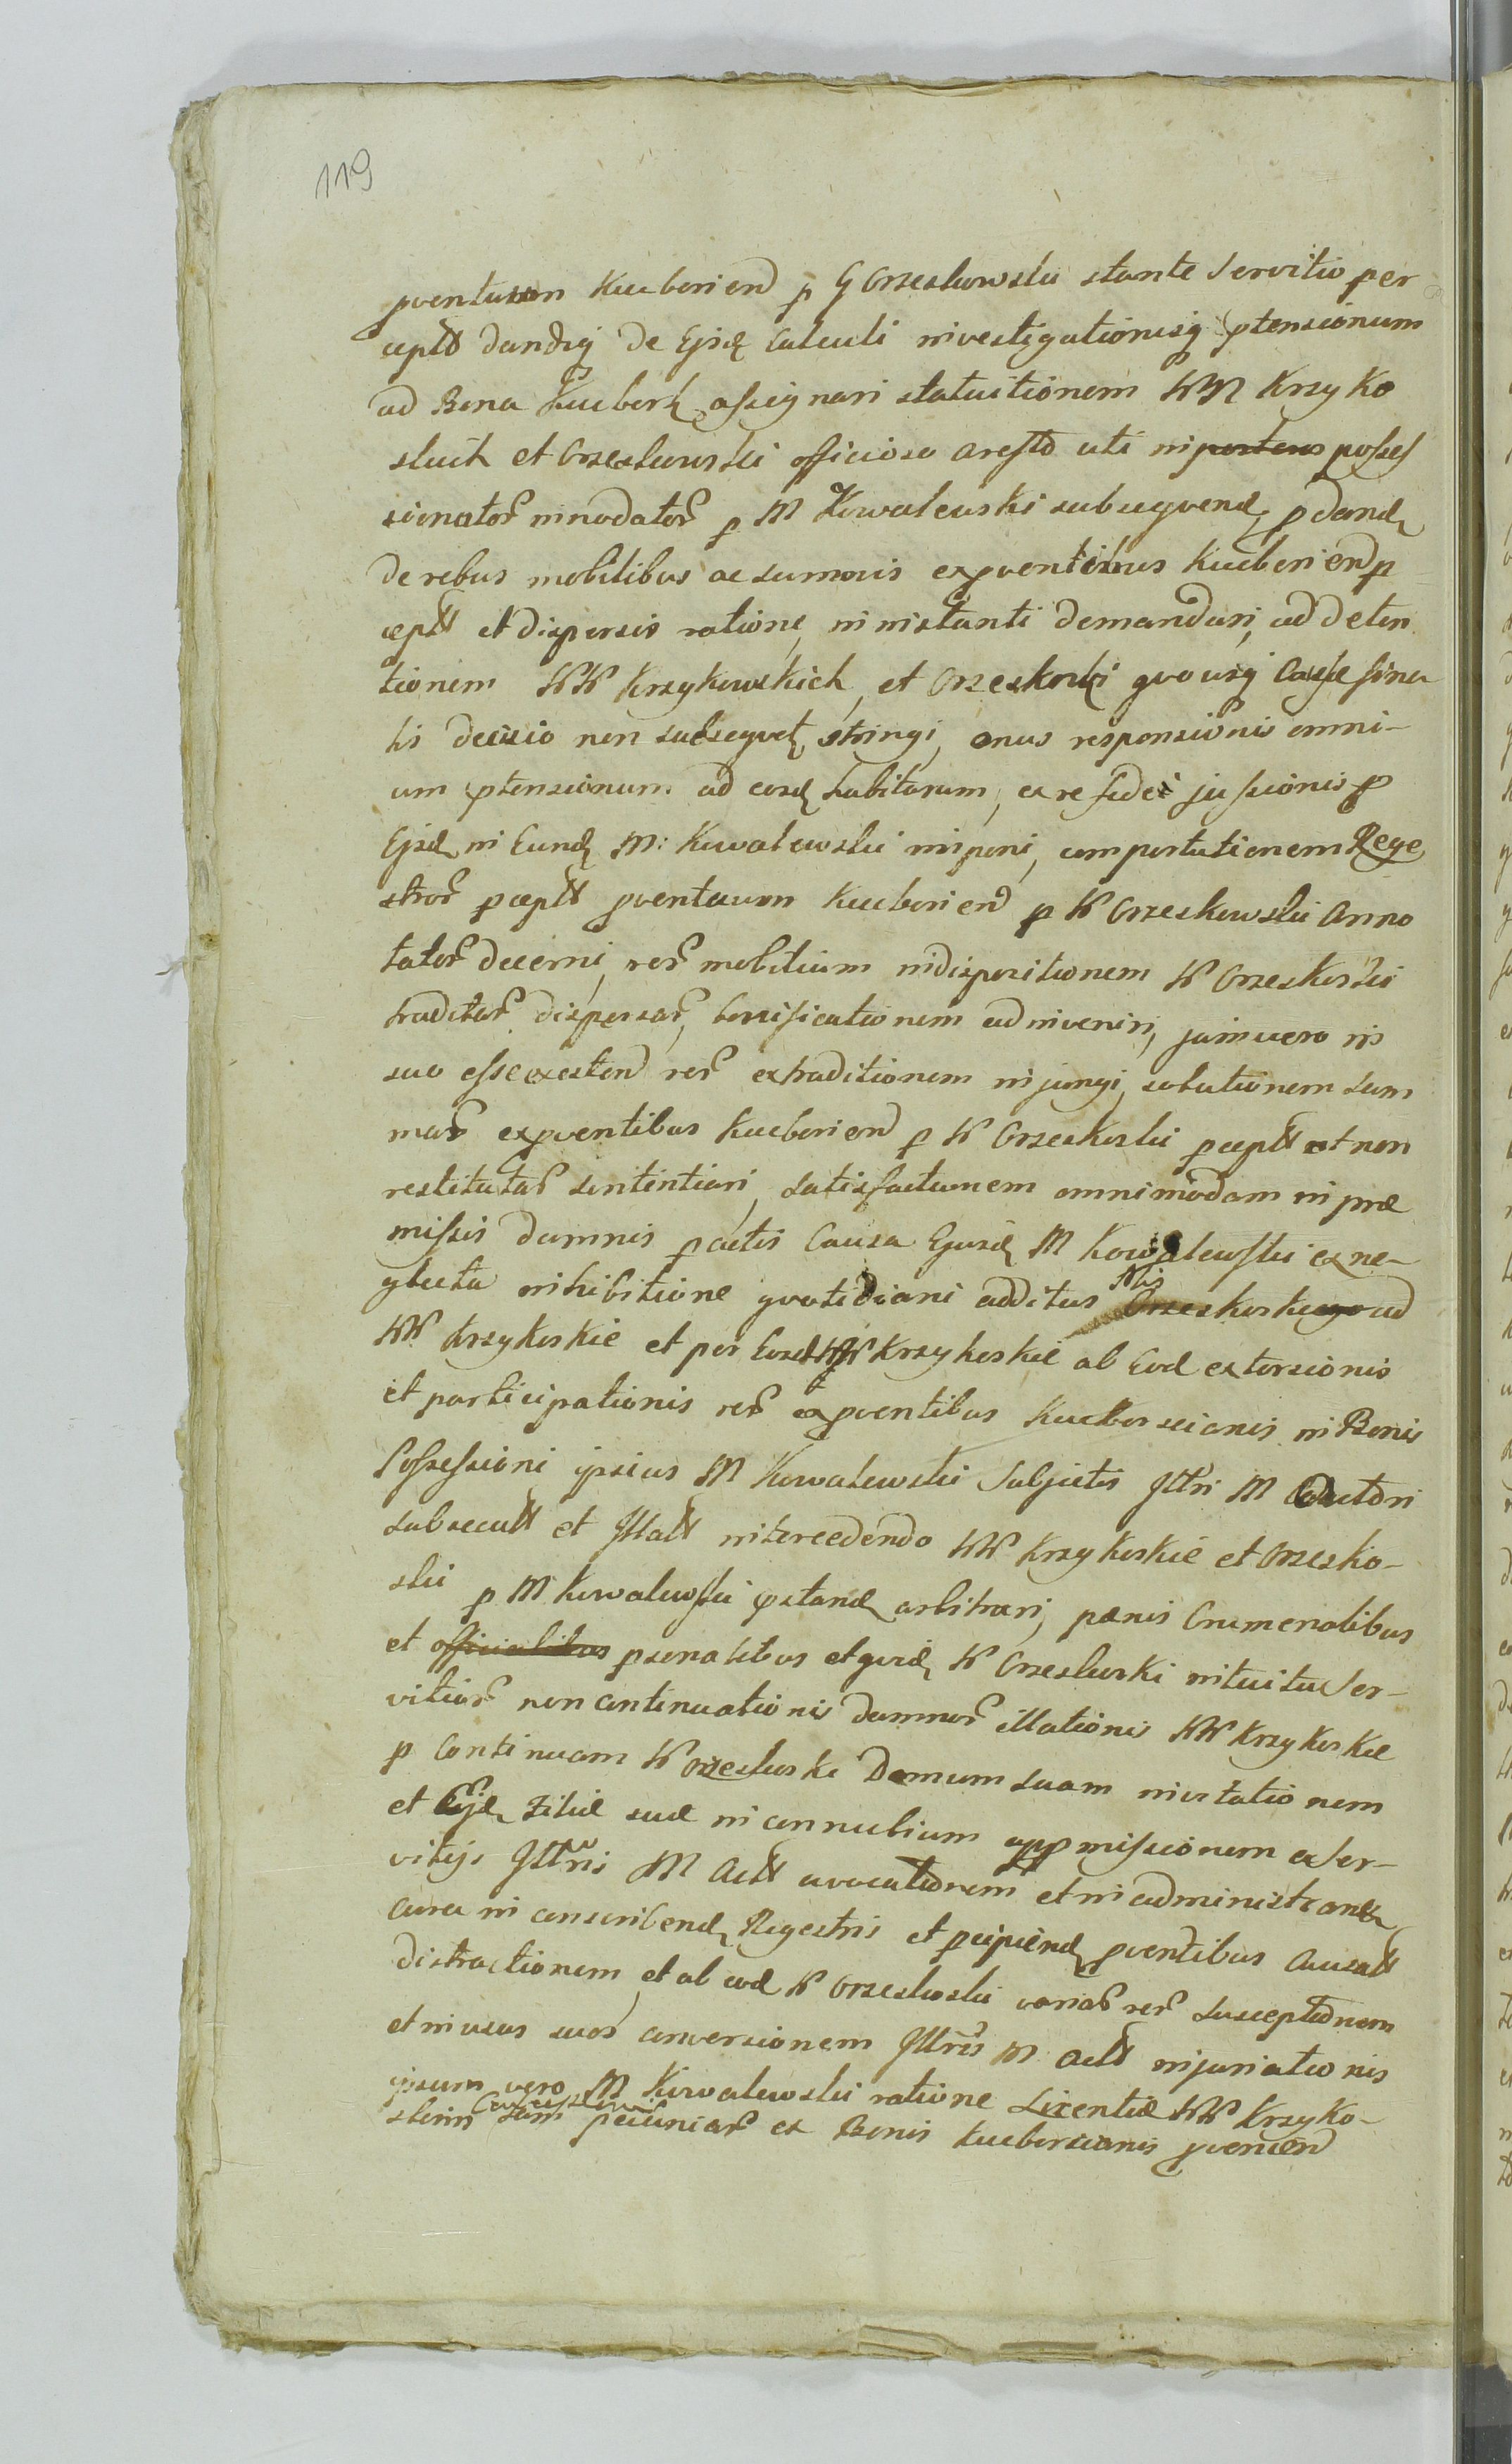 119
pventuum Kuczboriend p G Orzeskowski stante servitio per
ceptt dandiq de Ejsd Calculi investigationisq ptensionum
ad Bona Kuczbork assignari statuitionem WW Krzyko
skich et Orzeskowski officioso aresto uti in posses
sionator innodator p M Kowalewski subseqvend, p dand
de rebus mobilibus ac summis exproventibus Kuczboriend p
ceptt et dispersis ratione, in instanti demandari, ad deten
tionem WW Krzykowskich, et Orzeskoski qvousq Causse fina
lis decisio non subseqvet, stringi, onus responsionis omni-
um ptensionum ad eosd habitarum, ex re fidei jussionis p
Ejsd in Eund M: Kowalewski imponi, comportationem Rege
stror pceptt pventuum Kuczboriend p W Orzeskowski Anno
tator decerni, rer mobilium indispositionem W Orzeskoski
traditar dispersar, bonificationem adinveniri, jamvero in
suo esse existend rer extraditionem injungi, solutionem sum
mar expventibus Kuczboriend p W Orzeskoski pceptt et non
restitutar sententiari, satisfactionem omnimodam in præ
missis damnis pactis Causa Ejusd M Kowalewski ex ne-
glecta inhibitione qvotidiani additus Nis Orzeskoskiego ad
WW Krzykoskie et per Eosd WW Krzykoskie ab Eod extorsionis
et participationis rer expventibus Kuczborscianis in Bonis
Possessioni ipsius M Kowalewski Subjectis Jllri M Actori
subsecutt et Jllatt intercedendo WW Krzykoskie et Orzesko-
ski p M Kowalewski pstand arbitrari, pænis Crumenalibus
et officialibus psonalibus et qvid W Orzeskoski intuitu Ser-
vitior non continuationis damnor illationis WW Krzykoskie
p Continuam W Orzeskoski Domum suam invitationem
et Ejd Filiæ suæ in connubium appmissionem ex Ser-
vitijs Jllris M Actt avocationem et in administrand
cura in conscribend Regestris et pcipiend pventibus Causatt
distractionem, et ab eod W Orzeskoski variar rer susceptionem
et in usus suos conversionem Jllris M Actt injuriationis
ipsum vero M Kowalewski ratione Licentiæ WW Krzyko-
skim pecuniar ex Bonis Kuczborscianis pvenien